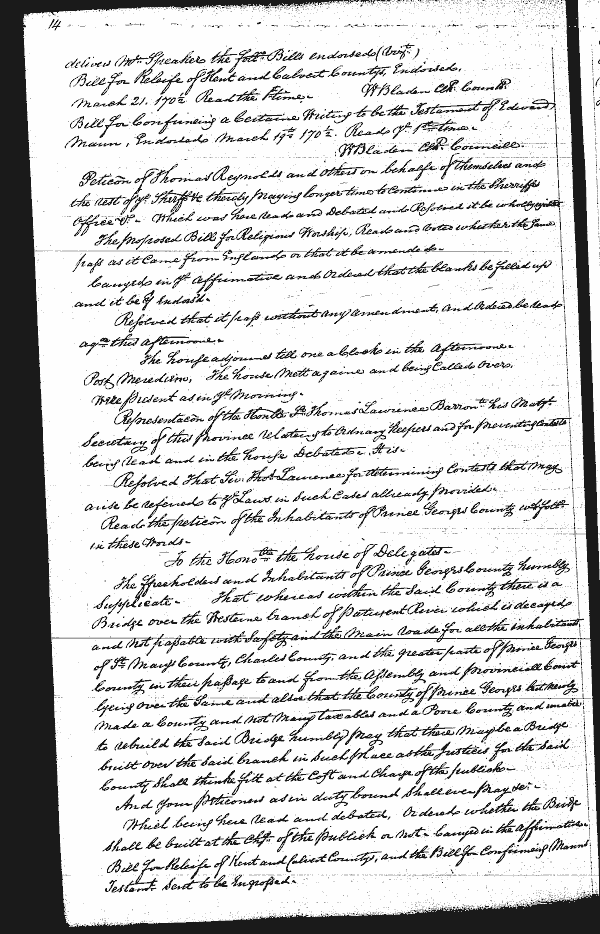 14
delivers Mr. Speaker the follg. Bills endorsed (Vizt.)
Bill for Releife of Kent and Calvert Countys, Endorsed,
March 21. 170½ Read the 1st time. WBladen Clk. Counll.
Bill for Confirming a Certaine Writing to be the Testament of Edward
Mann, Endorsed March 19th 170½. Read ye 1st time.
WBladen Clk. Councill.
Peticōn of Thomas Reynolds and others on behalfe of themselves and
the rest of ye Sheriffs &c thereby praying longer time to Continue in the Sherriffs
Office &c. Which was here read and Debated and Resolved it be wholly rejected
The proposed Bill for Religious Worship, Read and Voted whether the same
pass as it Came from England or that it be amended.
Carryed in ye affirmative and Ordered that the blanks be filled up
and it be Endorsd.
Resolved that it pass without any amendment, and Ordered be read
agn. this afternoone.
The house adjournes till one a Clock in the Afternoone.
Post Merediem, The house Mett againe and being Called Over,
Were present as in ye Morning.
Representacōn of the Honble Sr. Thomas Lawrence Barront. his Matys.
Secretary of this Province relateing to Ordnary keepers and for preventing Contests
being read and in the house Debated. It is.
Resolved That Sir Thos. Lawrence for determining Contests that may
arise be referred to ye Laws in Such Cases allready provided.
Read the peticōn of the Inhabitants of Prince Georges County wch. follo.
in these Words.
To the Honoble the house of Delegates.
The ffreeholders and Inhabitants of Prince Georges County humbly
Supplicate. That whereas within the Said County there is a
Bridge over the Westerne branch of Patuxent River which is decayed
and not passable with Safety and the Main roade for all the inhabitants
of St. Marys County, Charles County, and the greater parte of Prince Georges
County in their passage to and from the Assembly and Provinciall Court
lyeing over the Same and alsoe that the County of Prince Georges but newly
made a County and not Many taxables and a Poore County and unable
to rebuild the Said Bridge humbly pray that there May be a Bridge
built over the Said branch in Such place as the Justices for the Said
County Shall thinke fitt at the Cost and Charge of the publick.
And your petitioners as in duty bound Shall ever pray &c.
Which being here read and debated, Ordered whether the Bridge
shall be built at the Chg. of the Publick or Not. Carryed in the affirmative.
Bill for Releife of Kent and Calvert Countys, and the Bill for Confirming Manns
Testamt. Sent to be Engrossed.